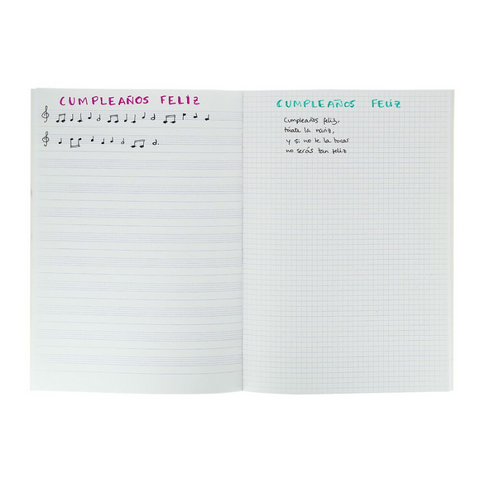 CUMPLEAÑOS FELIZ
CUMPLEAÑOS FELIZ
Cumpleaños feliz,
tócate la nariz,
y si no te la tocas
no serás tan feliz